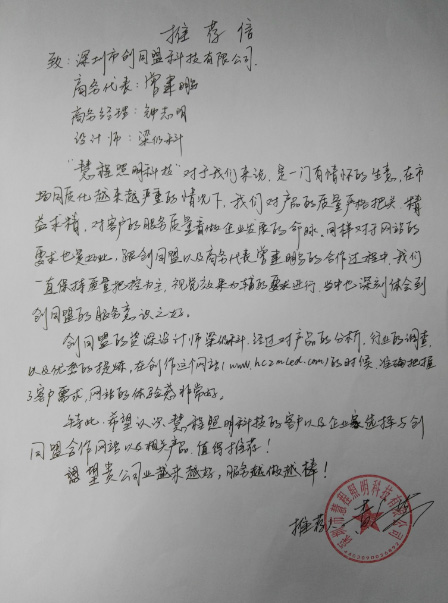 推荐信
致:深圳市创同盟科技有限公司.
商务代表:常建明
商务经理:钟志明
设计师:梁仍科
"慧程照明科技"对于我们来说,是一门有情怀的生意,在市
场同质化越来越严重的情况下,我们对产品的质量严格把关,精
益求精,对客户的服务质量看做企业发展的命脉。同样对于网站的
要求也是如此,跟创同盟以及商务代表常建明的合作过程中,我们
一直保持质量把控为主,视觉效果为辅的要求进行,当中也深刻体会到
创同盟的服务意识之好。
创同盟的资深设计师梁仍科,经过对产品的分析,行业的调查,
以及优势的提炼,在创作这个网站(www.hczmled.com)的时候,准确把握
了客户需求,网站的体验感非常好。
特此,希望认识慧程照明科技的客户以及企业家选择与创
同盟合作网站以及相关产品,值得推荐!
愿望贵公司业越来越好,服务越做越棒!
推荐人: